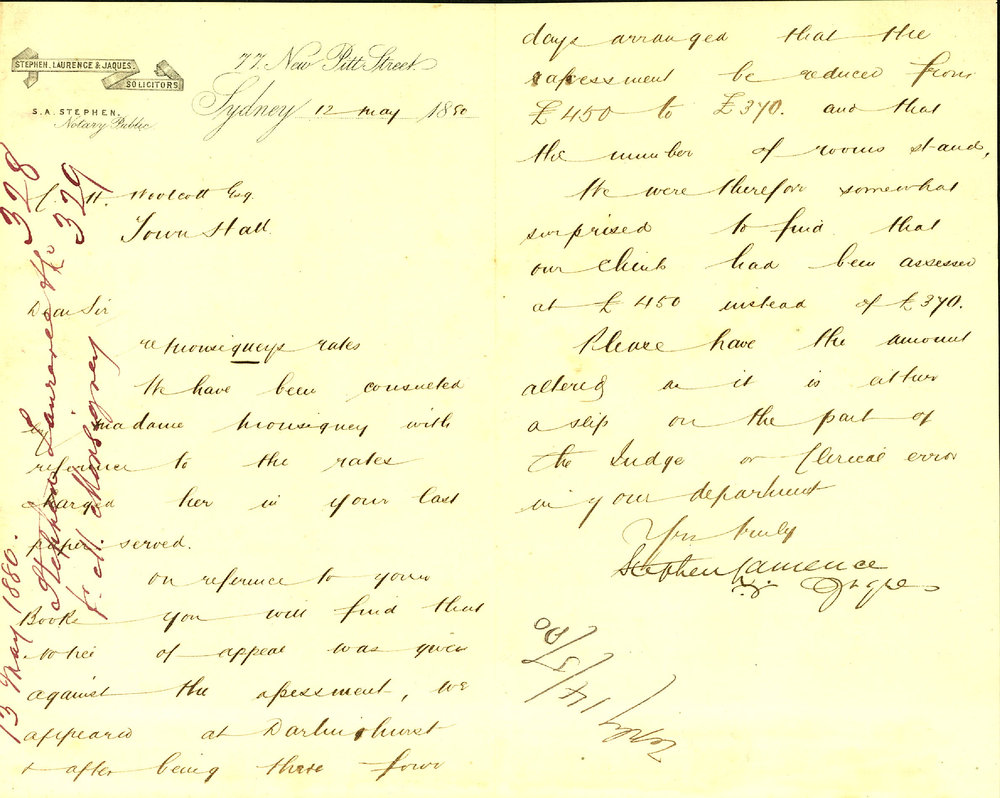 STEPHEN, LAURENCE & JAQUES
SOLICITORS
S.A. STEPHEN.
Notary Public
77 New Pitt Street
Sydney 12 May 1880
C. H. Woolcott Esq
Town Hall
Dear Sir
re Monsigneys rates
We have been consulted
by Madame Monsigney with
reference to the rates
charged her in your last
paper served.
On reference to your
Books you will find that
notice of appeal was given
against the assessment, we
appeared at Darlinghurst
& after being there four
days arranged that the
assessment be reduced from
£450 to £370. and that
the number of rooms stand,
We were therefore somewhat
surprised to find that
our client had been assessed
at £450 instead of £370.
Please have the amount
altered as it is either
a slip on the part of
the Judge or Clerical error
in your department
Yrs truly
Stephen Laurence
& Jaques
13 May 1880.
Stephen Laurence & Co 328
fr. M. Monsigney 329
Reply 14/5/80